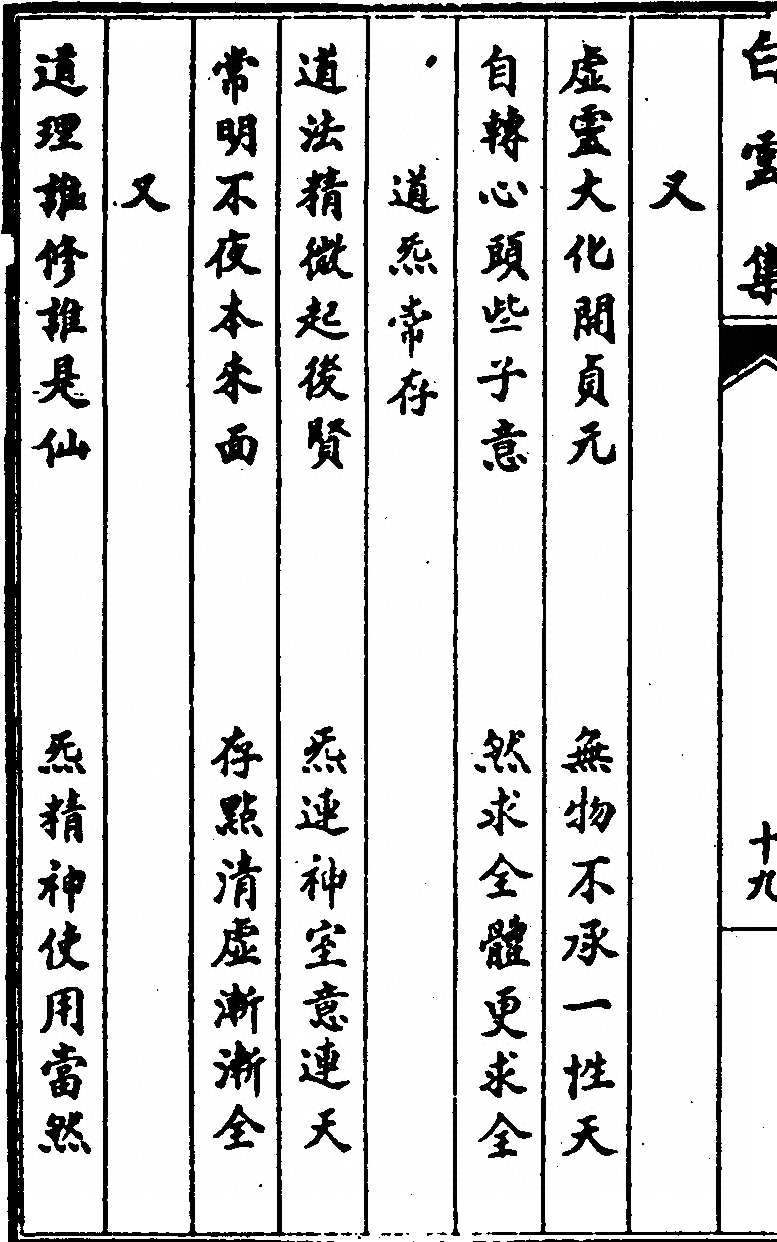 白雲集
十九
又
虛靈大化開貞元 無物不承一性天
自轉心頭些子意 然求全體更求全
道炁常存
道法精微起後賢 炁連神室意連天
常明不夜本來面 存點清虛漸漸全
又
道理誰修誰是仙 炁精神使用當然